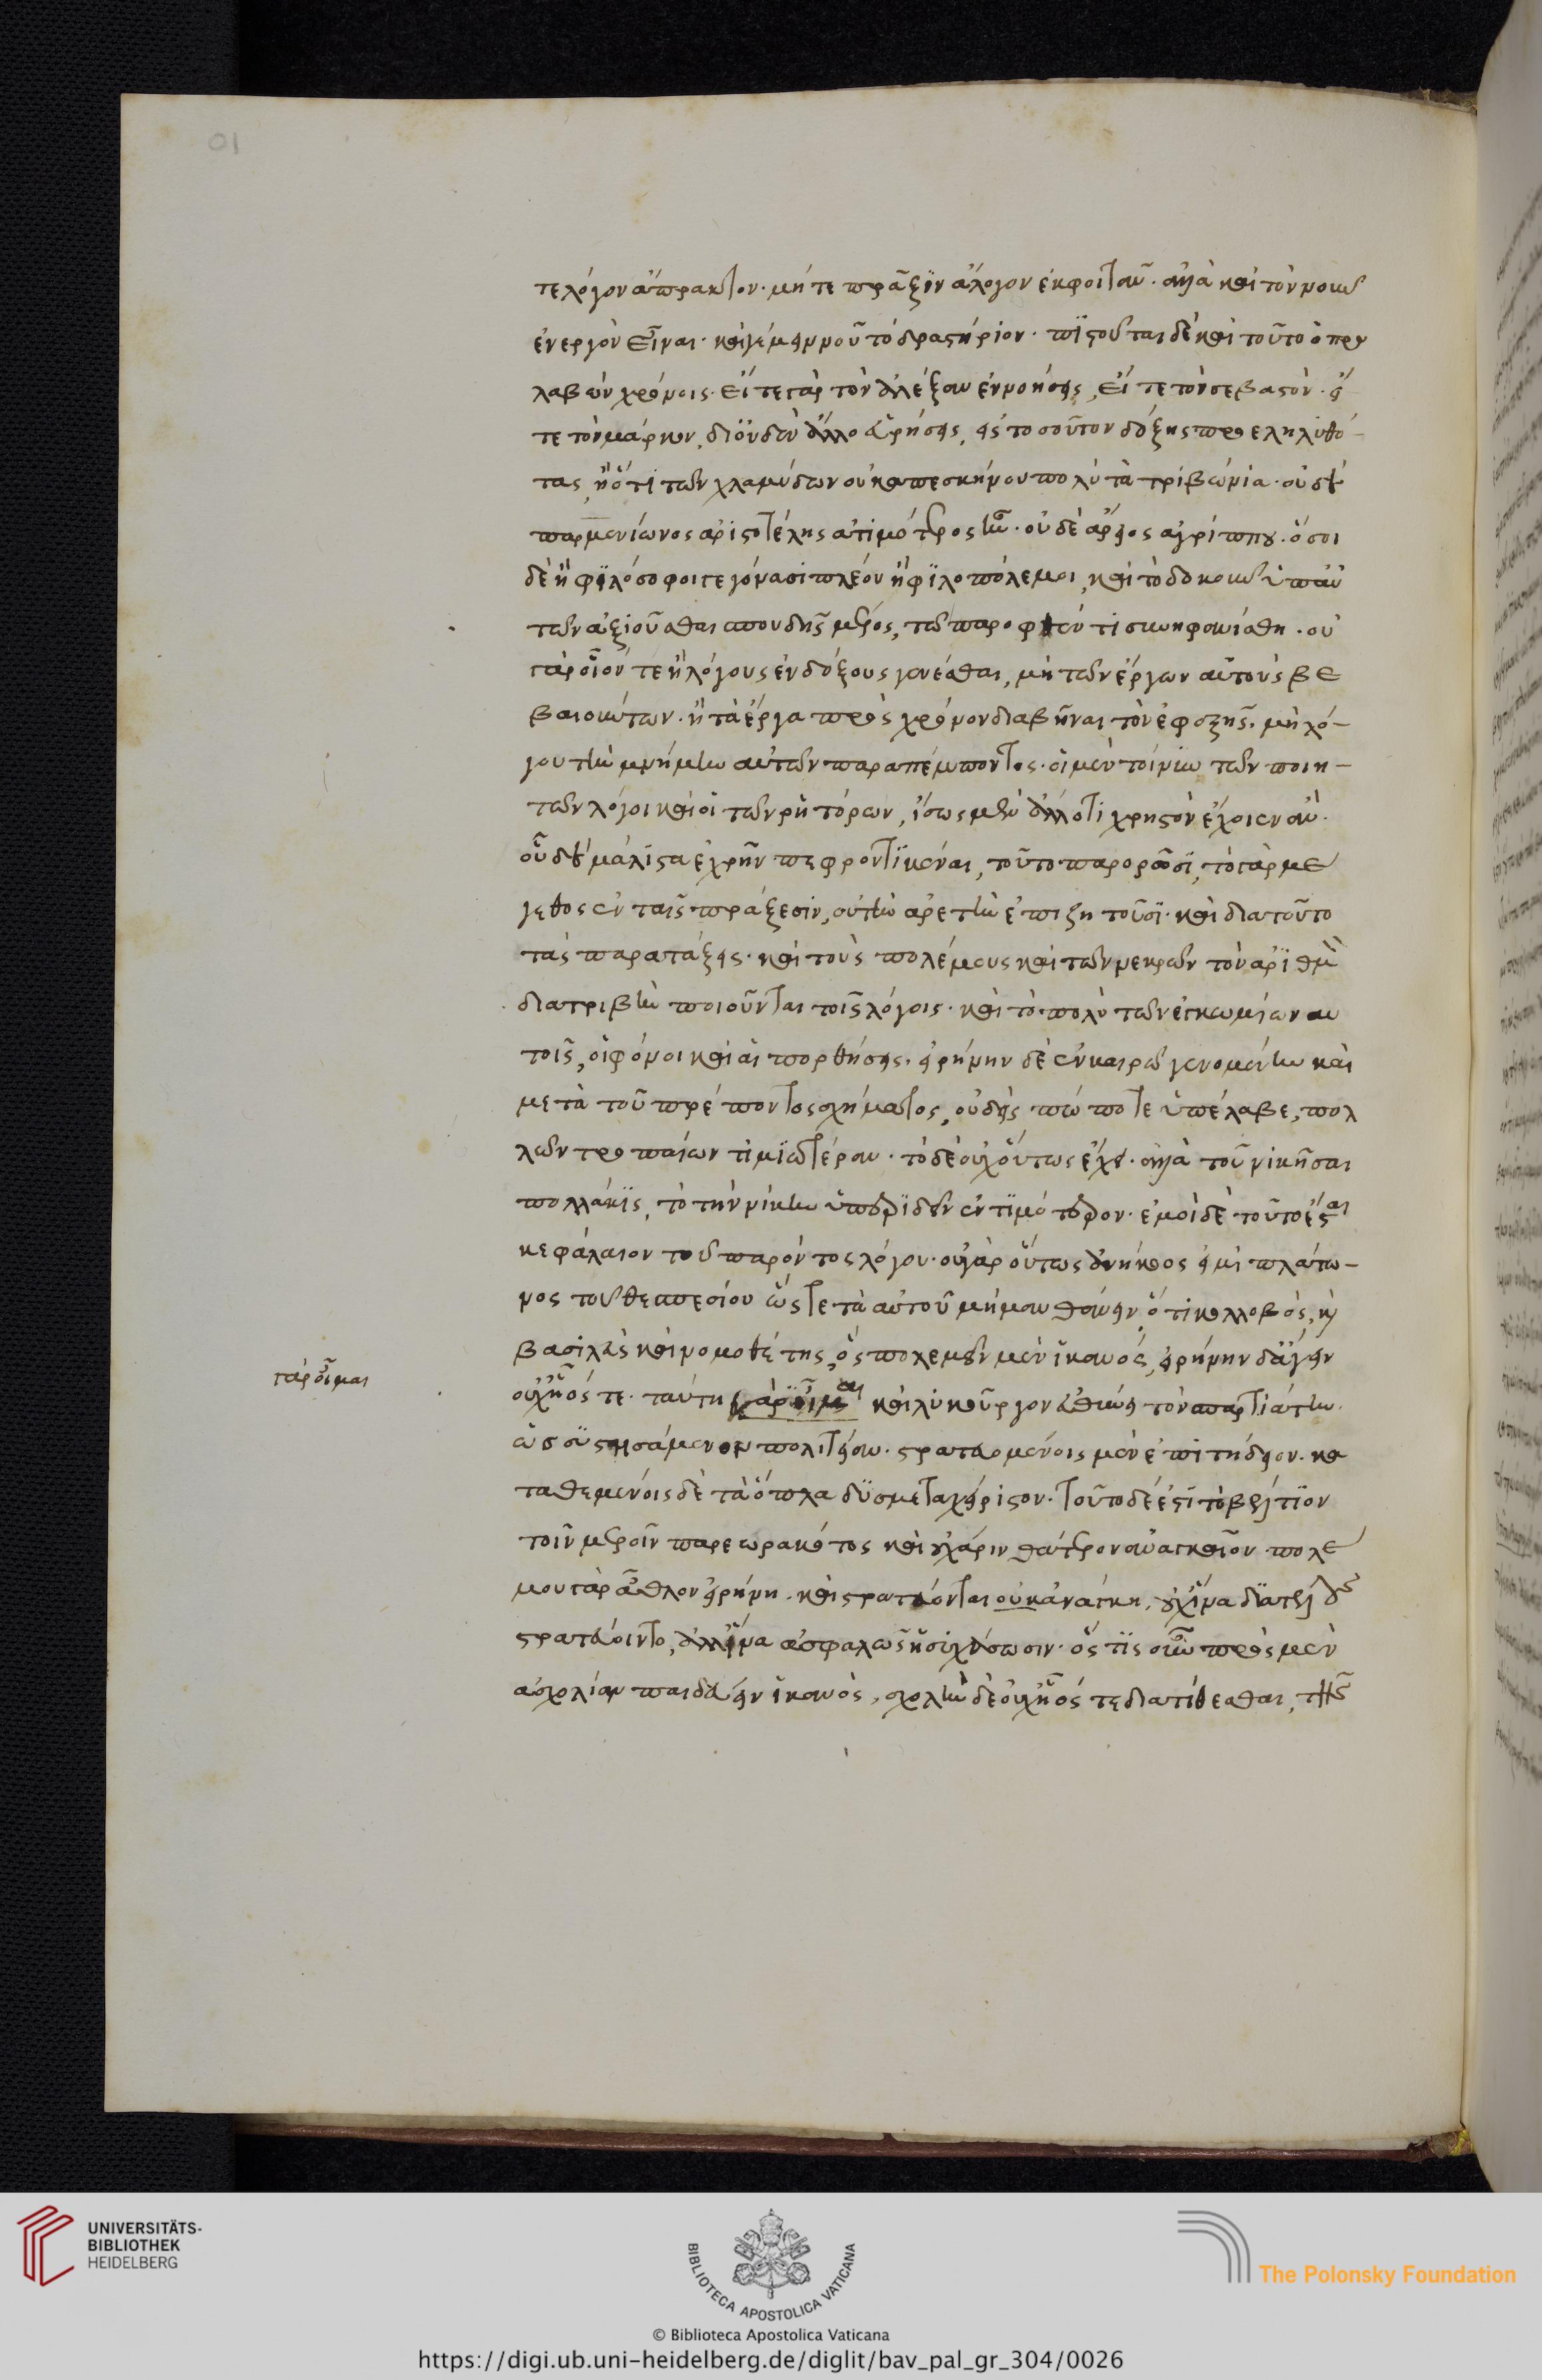 01
τε λόγον ἄπρακτον. μή τε πρᾶξιν ἄλογον ἐκφοιτᾶν. ἀλλὰ καὶ τὸν νοῦν
ἐνεργὸν εἶναι. καὶ γέμειν νοῦ τὸ δραστήριον. πιστοῦται δὲ καὶ τοῦτο ὁ προ
λαβὼν χρόνος. εἴτε γὰρ τὸν ἀλέξαν ἐννοήσεις, εἴ τε τὸν σεβαστὸν. εἴ
τε τὸν μάρκον, δι οὐδὲν ἄλλο εὑρήσεις, εἰς τοσοῦτον δόξης προεληλυθό-
τας, ἢ ὅτι τῶν χλαμύδων οὐκ ἀπεσκήνου πολὺ τὰ τριβώνια. οὐδὲ
παρμενίωνος ἀριστοτέλης ἀτιμότερος ἦν. οὐδὲ ἄρειος ἀγρίππου. ὅσοι
δὲ ἢ φιλόσοφοι γεγόνασι πλέον ἢ φιλοπόλεμοι, καὶ τὸ δοκοῦν ὑπ αὐ
τῶν ἀξιοῦσθαι σπουδῆς μέρος, τῷ παροφθέν τι συνηφανίσθη. οὐ
γὰρ οἷόν τε ἢ λόγους ἐνδόξους γενέσθαι, μὴ τῶν ἔργων αὐτοὺς βε
βαιούντων. ἢ τὰ ἔργα πρὸς χρόνον διαβῆναι τὸν ἐφεξῆς. μὴ λό-
γου τὴν μνήμην αὐτῶν παραπέμποντος. οἱ μὲν τοίνυν τῶν ποιη-
τῶν λόγοι καὶ οἱ τῶν ῥητόρων, ἴσως μὲν ἄλλο τι χρηστὸν ἔχοιεν ἂν.
οὗ δὲ μάλιστα ἐχρῆν πεφροντικέναι, τοῦτο παρορῶσι, τὸ γὰρ με
γεθος ἐν ταῖς πράξεσιν, οὐ τὴν ἀρετὴν ἐπιζητοῦσι. καὶ δια τοῦτο
τὰς παρατάξεις. καὶ τοὺς πολέμους καὶ τῶν νεκρῶν τὸν ἀριθμὸν
διατριβὴν ποιοῦνται τοῖς λόγοις. καὶ τὸ πολὺ τῶν ἐγκωμίων αυ
τοῖς, οἱ φόνοι καὶ αἱ πορθήσεις. εἰρήνην δὲ ἐν καιρῷ γενομένην καὶ
μετὰ τοῦ πρέποντος σχήματος, οὐδεὶς πώποτε ὑπέλαβε, πολ
λῶν τροπαίων τιμιωτέραν. τὸ δὲ οὐχ οὕτως ἔχει. ἀλλὰ τοῦ νικῆσαι
πολλάκις, τὸ τὴν νίκην ὑπεριδεῖν ἐντιμότερον. ἐμοὶ δὲ τοῦτο ἔσται
κεφάλαιον τοῦ παρόντος λόγου. οὐ γὰρ οὕτως ἀνήκοος εἰμὶ πλάτω-
νος τοῦ θεσπεσίου ὥστε τὰ αὐτοῦ μὴ μανθάνειν, ὅτι κολλοβὸς, καὶ
βασιλεὺς καὶ νομοθέτης, ὃς πολεμεῖν μὲν ἱκανός, εἰρήνην δ ἄγειν
οὐχ οἷός τε. ταύτη γὰρ οἶμαι καὶ λυκοῦργον εὐθύνει τὸν σπαρτιάτην.
ὡς συστησάμενον πολιτείαν. στρατευομένοις μὲν ἐπιτήδειον. κα
ταθεμένοις δὲ τὰ ὅπλα δυσμεταχείριστον. τοῦτο δέ ἐστι τὸ βέλτιον
τοῖν μεροῖν παρεωρακότος καὶ οὗ χάριν θάτερον ἀναγκαῖον πολε
μου γὰρ ἆθλον εἰρήνη. καὶ στρατεύονται οὐκ ἀνάγκη, οὐχ ἵνα διατελῶς
στρατεύοιντο, ἀλλ ἵνα ἀσφαλῶς ἡσυχάσωσιν. ὅς τις οὖν πρὸς μὲν
ἀσχολίαν παιδεύειν ἱκανὸς, σχολὴν δὲ οὐχ οἷός τε διατίθεσθαι, τῆς
γὰρ οἶμαι
UNIVERSITÄTS-
BIBLIOTHEK
HEIDELBERG
BIBLIOTECA APOSTOLICA VATICANA
The Polonsky Foundation
© Biblioteca Apostolica Vaticana
https://digi.ub.uni-heidelberg.de/diglit/bav_pal_gr_304/0026